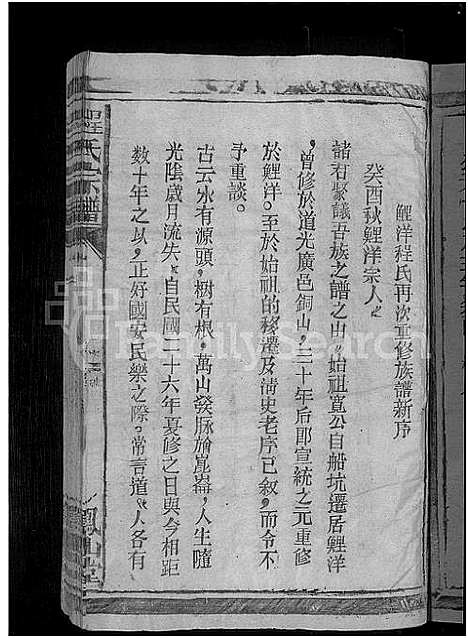 鯉洋程氏再次重修族譜新序
癸酉秋鯉洋宗人
諸右聚議吾族之譜之山始祖寬公自船坑遷居鯉洋
，曾修於道光廣邑銅山，三十年后即宣統之元重修
於鯉洋。至於始祖的移遷及清史老序已叙，而令不
予重談。
古云水有源頭，樹有根，萬山發脉崑崙，人生隨
光陰歲月流失，自民國二十六年夏修之日與今相距
数十年之以，正好國安民樂之際。常言道，人各有
程氏宗譜
FamilySearch